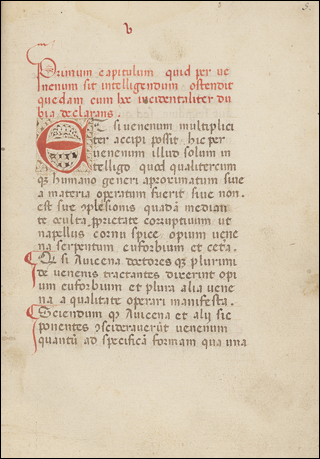 b
5
Primum capitulum quid per ve
nenum sit intelligendum ostendit
quedam cum hoc incidentaliter du
bia declarans.
Et si venenum multiplici
ter accipi possit hic per
venenum illud solum in
telligo quod qualitercum
qꝫ humano generi aproximatum sive
a materia operatum fuerit sive non.
est sue ↄplesionis quadā median
te oculta ꝓprietate corruptivum ut
napellus cornu spice opium vene
na serpentum euforbium et cetera.
Et si Avicena doctores qꝫ plurimi
de venenis tractantes dixerint opi
um euforbium et plura alia vene
na a qualitate operari manifesta.
Sciendum qꝫ Avicena et alii sic
ponentes ↄsideraverūt venenum
quantū ad specificā formam qua una